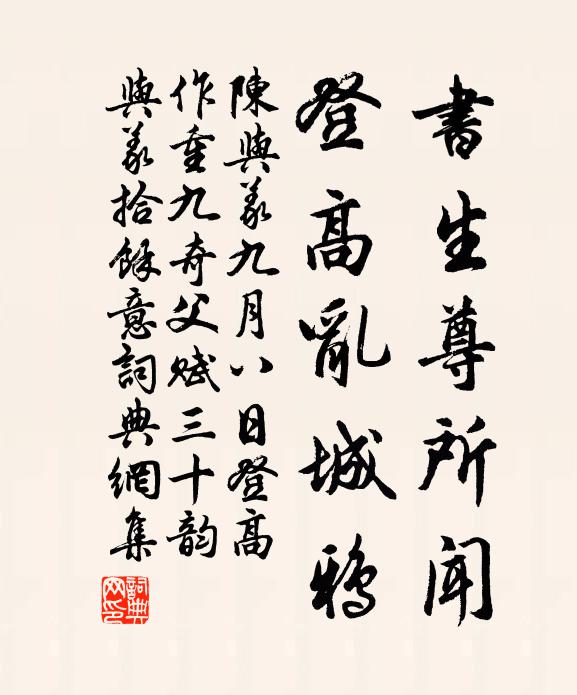 書生尊所聞
登高亂城鴉
陳與義九月八日登高
作重九奇父賦三十韵
與義拾餘意詞典網集
詞典网印